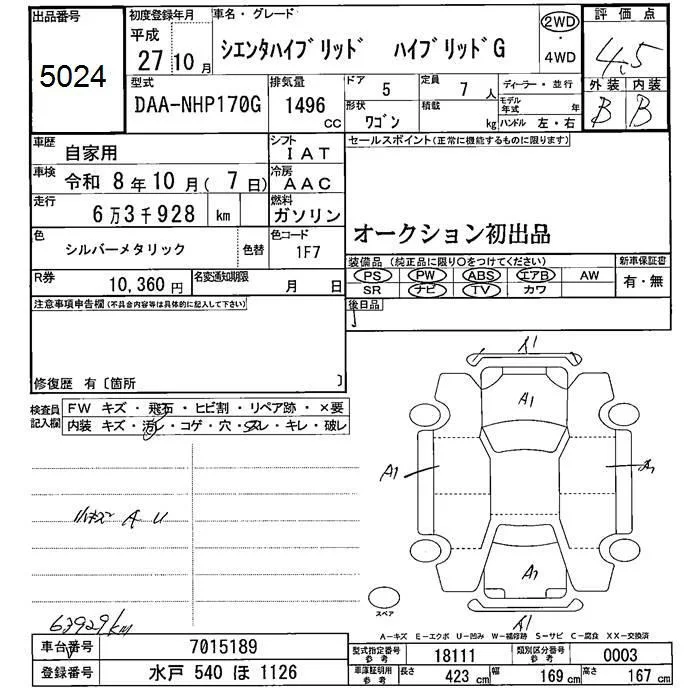 出品番号
5024
初度登録年月
平成
27 10 月
車名・グレード
シエンタハイブリッド ハイブリッドG
2WD
・
4WD
評価点
4.5
外装 内装
B B
型式
DAA-NHP170G
排気量
1496 cc
ドア 5
定員 7 人
形状 ワゴン
積載 kg
ディーラー・並行
モデル年式 年
ハンドル 左・右
車歴
自家用
シフト
IAT
車検
令和 8年10月( 7日)
冷房
AAC
走行
6万3千928 km
燃料
ガソリン
色
シルバーメタリック
色替
色コード
1F7
R券
10,360円
名変通知期限
月 日
セールスポイント(正常に機能するものに限ります)
オークション初出品
装備品 (純正品に限り○をつけてください)
新車保証書
PS PW ABS エアB AW
有・無
SR ナビ TV カワ
後日品
注意事項申告欄(不具合内容等は具体的に記入して下さい)
修復歴 有〔箇所 〕
検査員記入欄
FW キズ・飛石・ヒビ割・リペア跡・×要
内装 キズ・汚レ・コゲ・穴・スレ・キレ・破レ
A U
63929km
A1
A1
A1
A1
A1
A1
スペア
A−キズ E−エクボ U−凹み W−補修跡 S−サビ C−腐食 XX−交換済
車台番号
7015189
登録番号
水戸 540 ほ 1126
型式指定番号
参考
18111
類別区分番号
参考
0003
車庫証明用
参考
長さ 423 cm
幅 169 cm
高さ 167 cm